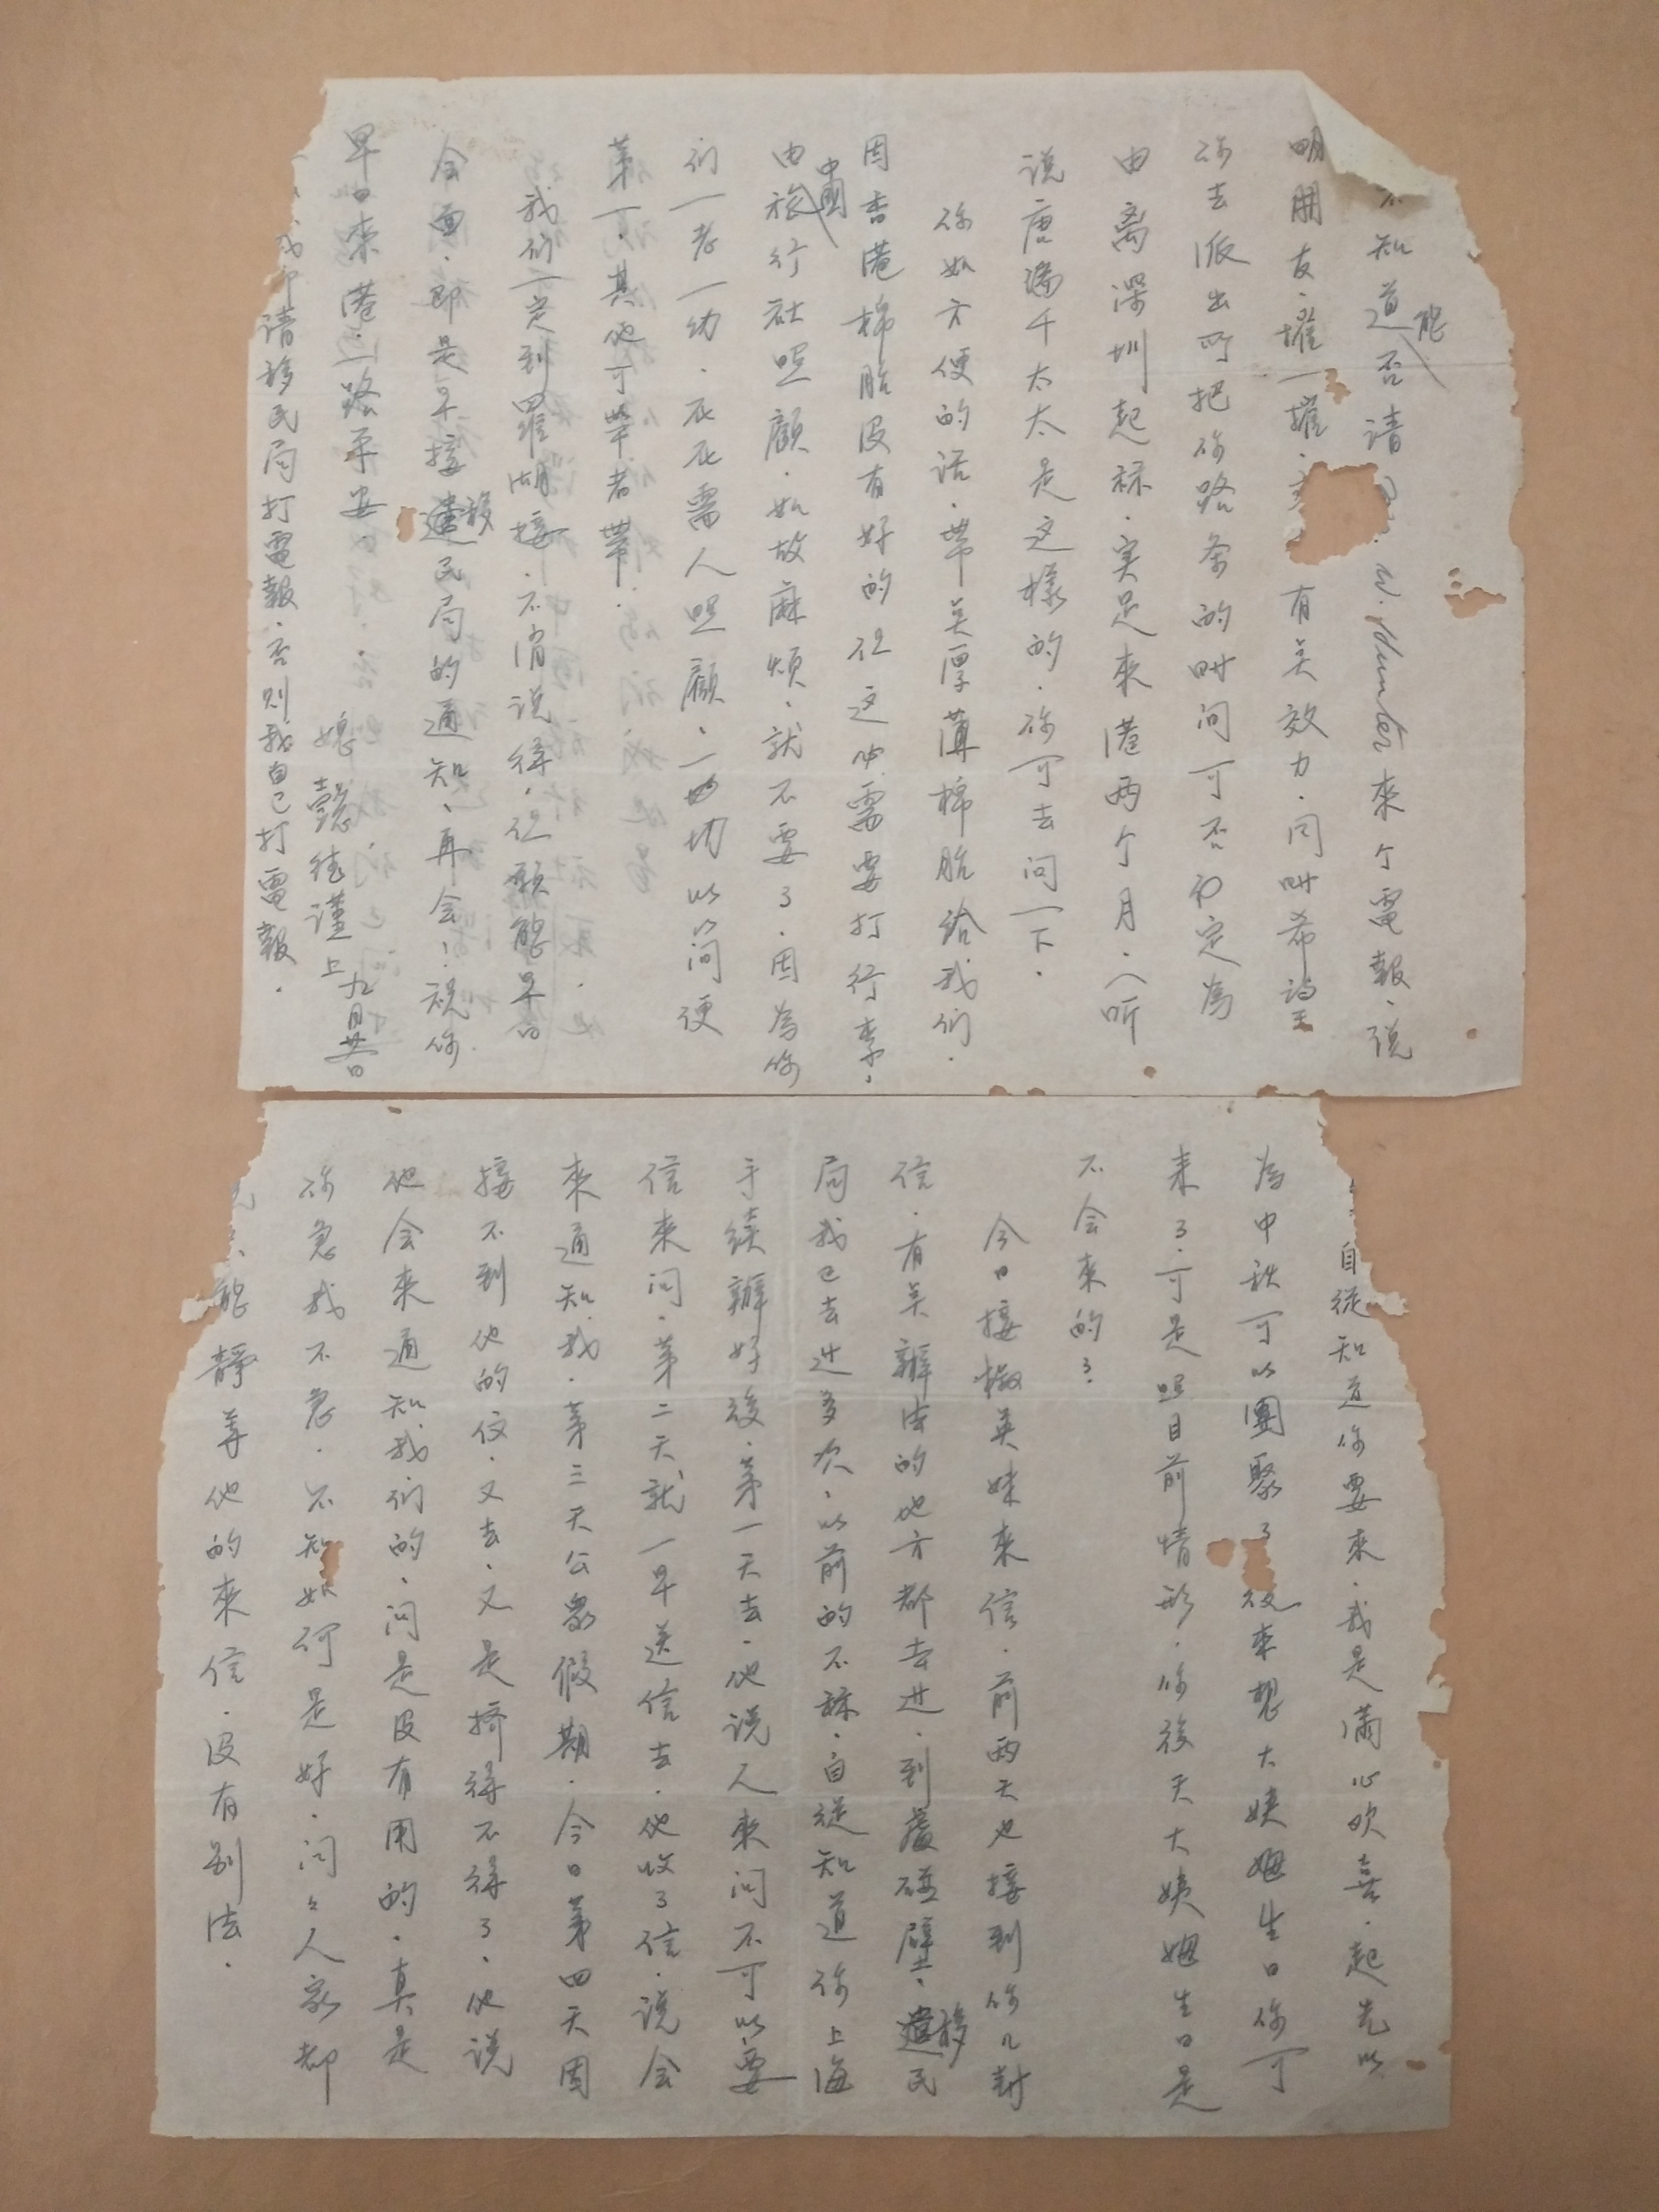 自從知道你要來．我是滿心欢喜．起先以
為中秋可以團聚了 後來想大姨姆生日你可
来了．可是照目前情形．你後天大姨姆生日是
不会來的了．
今日接椒英妹来信．前两天也接到你几封
信．有关辦法的地方都去进．到處碰壁．移民
局我已去过多次．以前的不称．自從知道你上海
手续辦好後．第一天去．他说人來问不可以要
信來问．第二天就一早送信去．他收了信．说会
來通知我．第三天公衆假期．今日第四天因
接不到他的信．又去．又是擠得不得了．他说
他会来通知我们的．问是没有用的．真是
你急我不急．不知如何是好．问々人家都
能静等他的來信．没有别法．
知道能否请 W. Hunter 來个電報．说
明朋友．擢一擢． 有关效力．同时希望
你去派出所把你路条的时间可否 定為
由离深圳起称．实足來港两个月．人听
说唐瑞千太太是这樣的．你可去问一下．
你如方便的话．带关厚薄棉胎给我们．
因香港棉胎没有好的 但这必需要打行李．
由中國旅行社照顧．如故麻煩．就不要了．因為你
们一老一幼．在在需人照顧．一切切以简便
第一．其他可带者带．
我们一定到羅湖接．不消说得．但願能早日
会面．即是早接移民局的通知．再会！祝你
早日來港．一路平安．
媳 懿德谨上 九月廿日
请移民局打電報．否则我自己打電報．